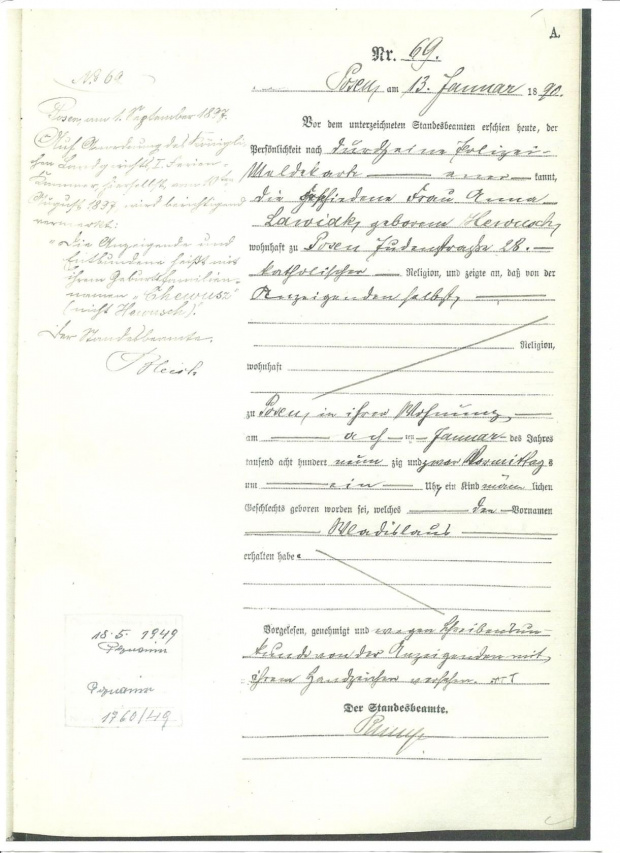 A.
Nr. 69.
Posen, am 13. Januar 1890.
Vor dem unterzeichneten Standesbeamten erschien heute, der
Persönlichkeit nach durch eine Polizei-
Meldekarte — aner — kannt,
die geschiedene Frau Anna
Lawidk, geborene Hewusch,
wohnhaft zu Posen Judenstraße 28.
katholischer Religion, und zeigte an, daß von der
Anzeigenden selbst,
Religion,
wohnhaft
zu Posen, in ihrer Wohnung
am ach ten Januar des Jahres
tausend acht hundert neun zig und zwar Vormittags
um ein Uhr, ein Kind männ lichen
Geschlechts geboren worden sei, welches den Vornamen
Wladislaus
erhalten habe.
Vorgelesen, genehmigt und wegen Schreibensun-
kunde von der Anzeigenden mit
ihrem Handzeichen versehen. +++
Der Standesbeamte.
No 69
Posen, am 1. September 1897.
Auf Anordnung des Königli-
chen Landgerichts, I. Ferien
Kammer, hierselbst am 10ten
August 1897 wird berichtigend
vermerkt:
"Die Anzeigende und
Entbundene heißt mit
ihrem Geburtsfamilien-
namen "Chewusz"
(nicht Hewusch)".
Der Standesbeamte.
18.5.1949
1760/49